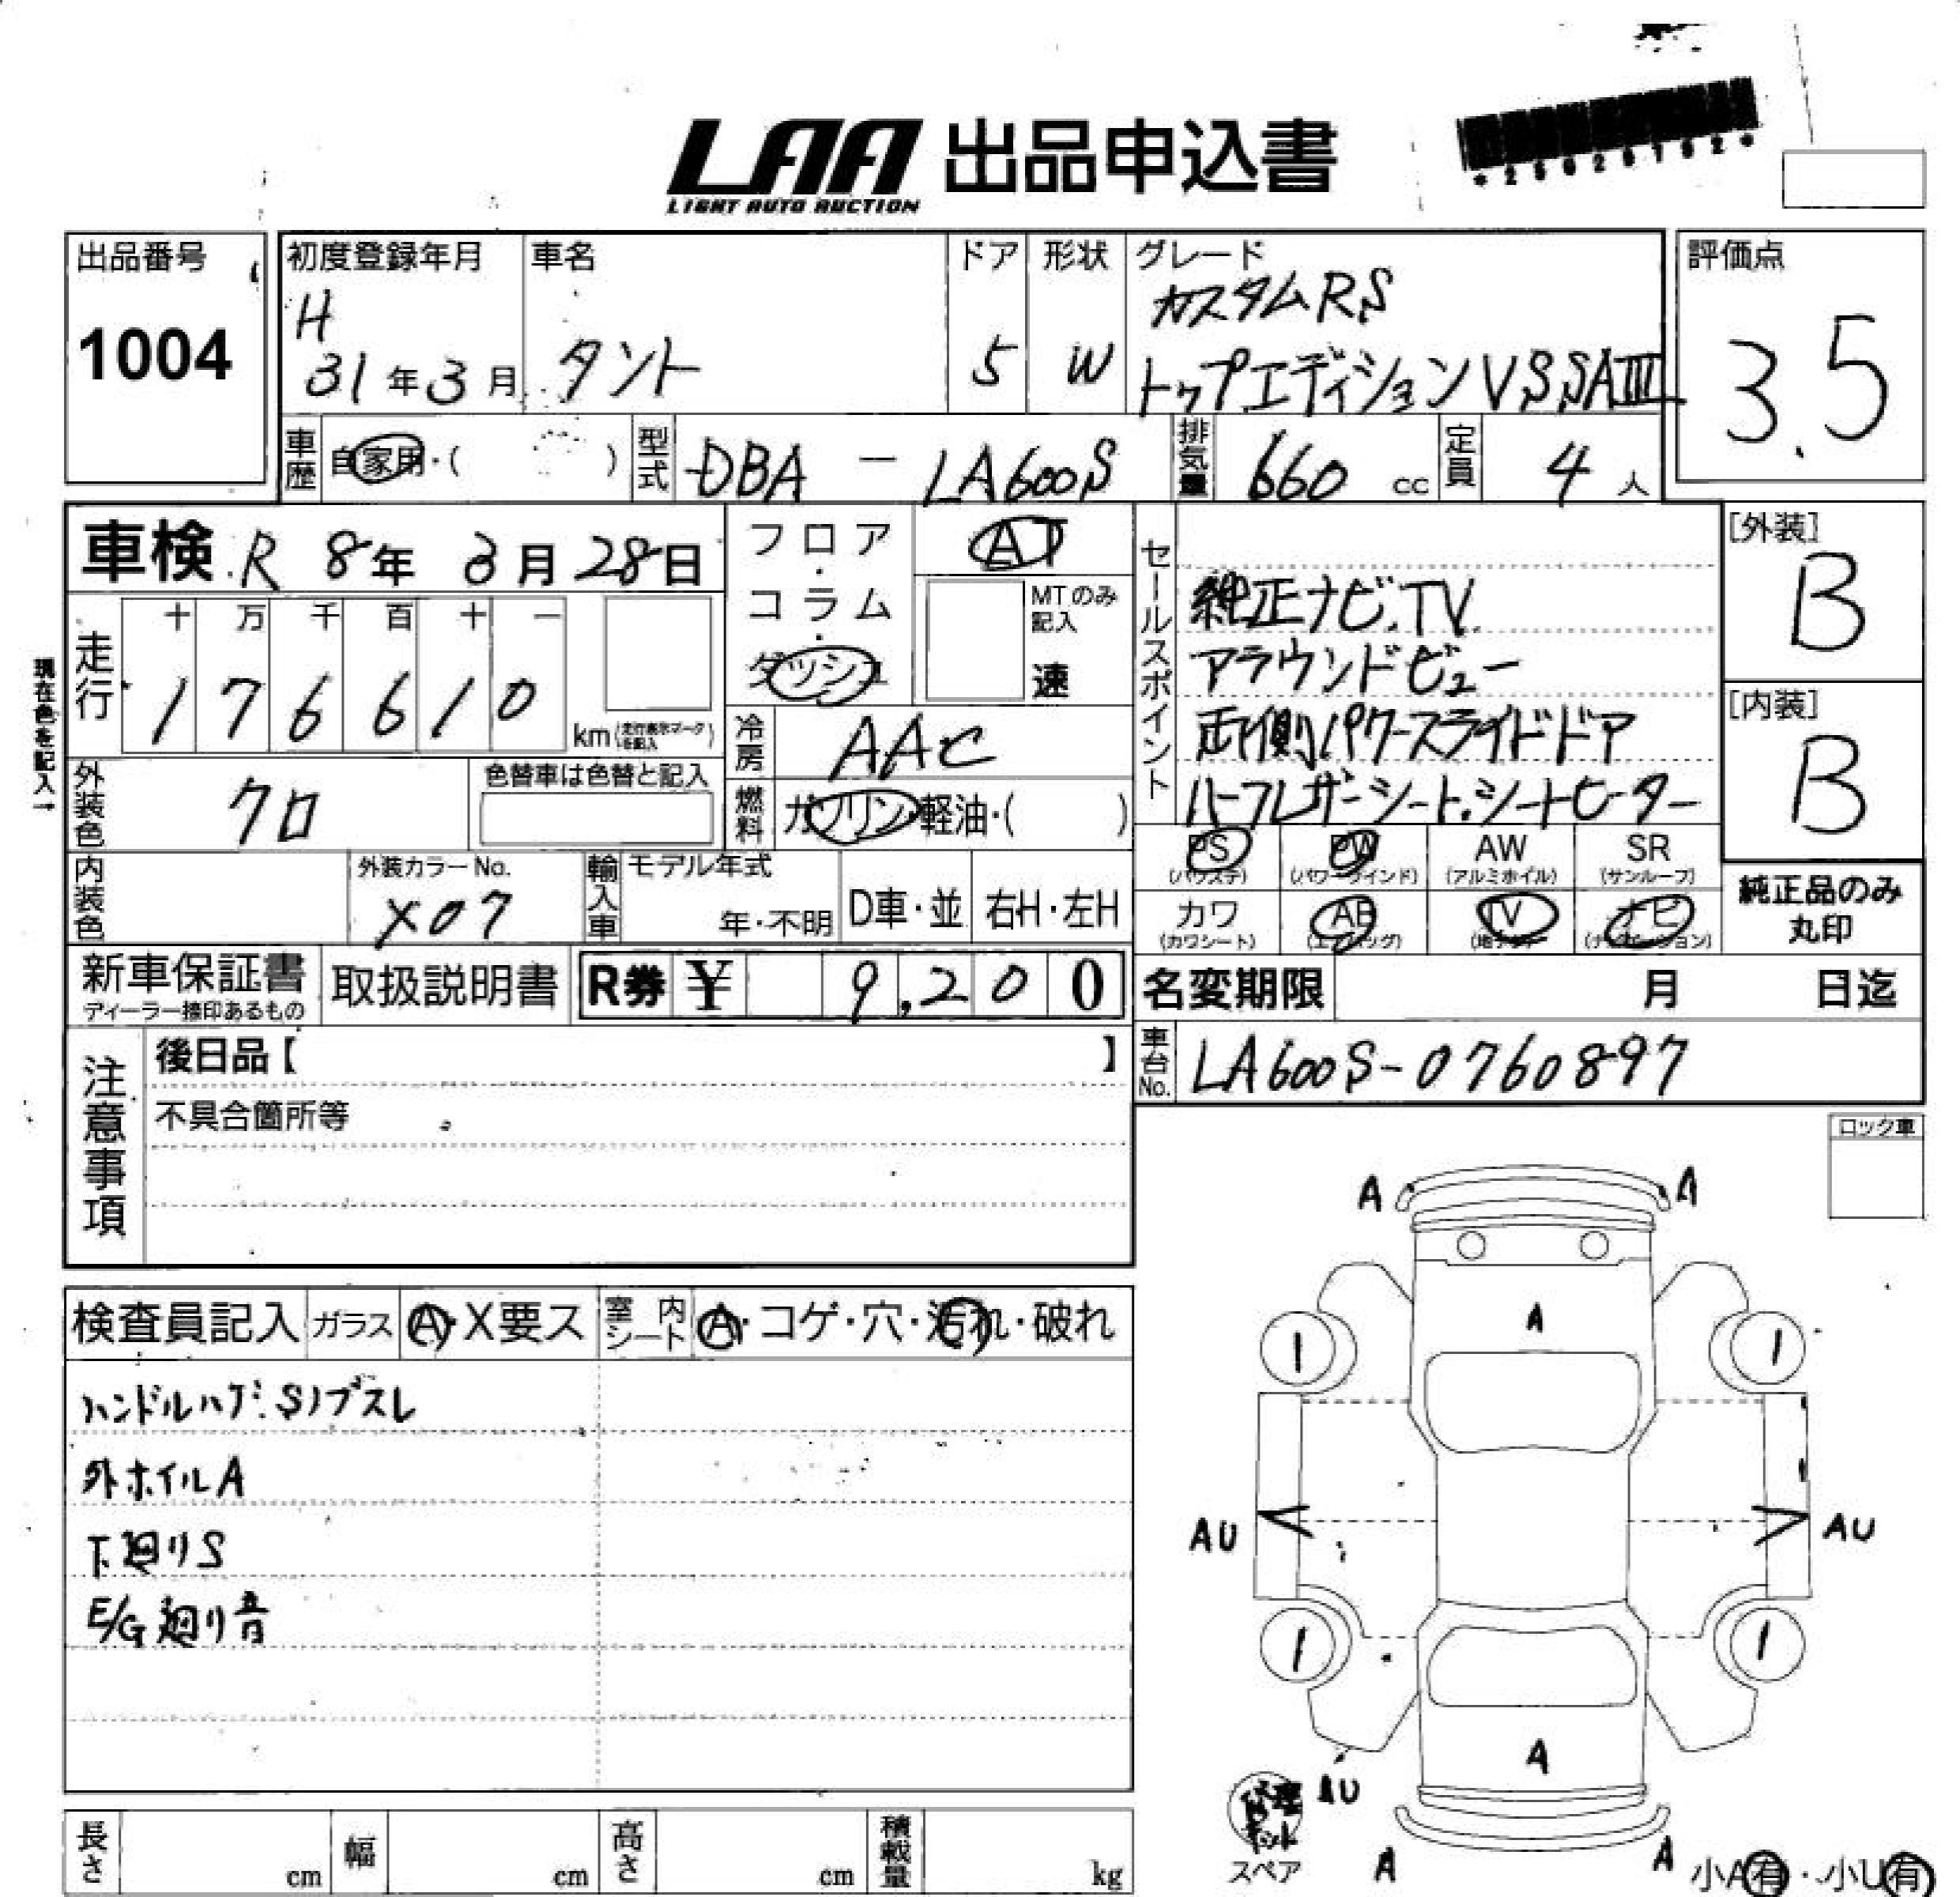 LAA 出品申込書
LIGHT AUTO AUCTION
*25026192*
出品番号
1004
初度登録年月
H
31年3月
車名
タント
ドア
5
形状
W
グレード
カスタムRS
トップエディションVSSAⅢ
評価点
3.5
車歴
自家用・( )
型式
DBA - LA600S
排気量
660 cc
定員
4 人
車検 R 8年 3月 28日
フロア・コラム・ダッシュ
AT
MTのみ記入
速
セールスポイント
純正ナビ.TV
アラウンドビュー
両側パワースライドドア
ハーフレザーシート.シートヒーター
[外装]
B
[内装]
B
現在色を記入→
走行
十 万 千 百 十 一
1 7 6 6 1 0
km(走行表示マークを記入)
冷房
AAC
燃料
ガソリン・軽油・( )
外装色
クロ
色替車は色替と記入
内装色
外装カラーNo.
X07
輸入車
モデル年式
年・不明
D車・並
右H・左H
PS
(パワステ)
PW
(パワーウインド)
AW
(アルミホイル)
SR
(サンルーフ)
カワ
(カワシート)
AB
(エアバッグ)
TV
ナビ
(ナビゲーション)
純正品のみ
丸印
新車保証書
ディーラー捺印あるもの
取扱説明書
R券 ¥ 9,200
名変期限 月 日迄
注意事項
後日品【 】
不具合箇所等
車台No.
LA600S-0760897
ロック車
検査員記入
ガラス
A・X要ス
室内シート
A・コゲ・穴・汚れ・破れ
ハンドルハゲ.Sノブスレ
外ホイルA
下廻りS
E/G廻り音
A A
A
1 1
AU AU
1 1
A
AU
修理キット
スペア
A A
小A有・小U有
長さ cm
幅 cm
高さ cm
積載量 kg